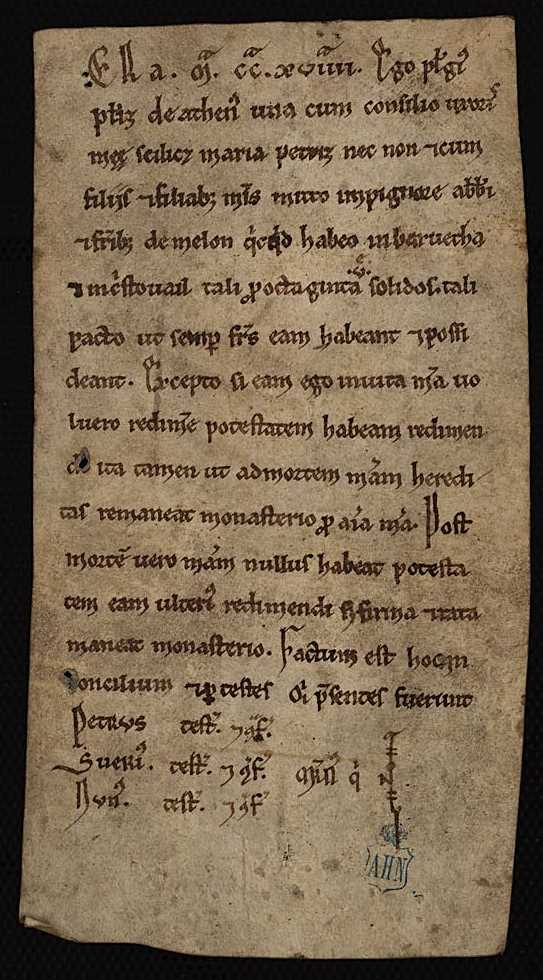 ERA. Mª. CCª. XVIIIIª. Ego pet̃gꝰ
pet̃z de athenꝰ una cum consilio uxorꝭ
meę scilicꝫ maria petriz nec non ⁊ cum
filiis ⁊ filiabꝫ m̃s mitto inpignore abb̃i
⁊ fr̃ibꝫ de melon q̇cq̇d habeo in baruecha
⁊ in c̃stouail tali ꝓ octaginta .v.e solidos. tali
pacto ut semꝑ fr̃s eam habeant ⁊ possi
deant. Excepto si eam ego in uita m̃a uo
luero redim̃e potestatem habeam redimen
di ita tamen ut ad mortem m̃am heredi
tas remaneat monasterio ꝓ aĩa m̃a. Post
mortẽ uero m̃am nullus habeat potesta
tem eam ulteriꝰ redimendi s; firma ⁊ rata
maneat monasterio. Factum est hoc in
concilium ⁊ ꝑ testes q̃i p̃sentes fuerunt
Petrus testꝭ. ⁊ 9f̃.
Suerꝰ. testꝭ. ⁊ 9f̃. Mr̃tĩ q̇
Nunꝰ. testꝭ. ⁊ 9f̃
AHN